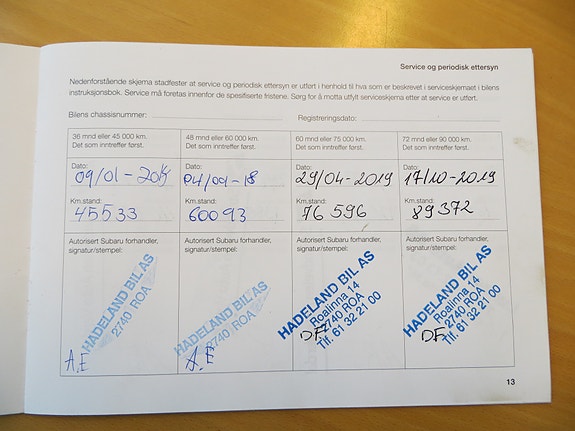 Service og periodisk ettersyn
Nedenforstående skjema stadfester at service og periodisk ettersyn er utført i henhold til hva som er beskrevet i serviceskjemaet i bilens
instruksjonsbok. Service må foretas innenfor de spesifiserte fristene. Sørg for å motta utfylt serviceskjema etter at service er utført.
Bilens chassisnummer: Registreringsdato:
36 mnd eller 45 000 km.
Det som inntreffer først.
48 mnd eller 60 000 km.
Det som inntreffer først.
60 mnd eller 75 000 km.
Det som inntreffer først.
72 mnd eller 90 000 km.
Det som inntreffer først.
Dato:
09/01-
Dato:
04/09-18
Dato:
29/04-2019
Dato:
17/10-2019
Km.stand:
45533
Km.stand:
60093
Km.stand:
76596
Km.stand:
89372
Autorisert Subaru forhandler,
signatur/stempel:
HADELAND BIL AS
2740 ROA
A.E
Autorisert Subaru forhandler,
signatur/stempel:
HADELAND BIL AS
2740 ROA
A.E
Autorisert Subaru forhandler,
signatur/stempel:
HADELAND BIL AS
Roalinna 14
2740 ROA
Tlf. 61 32 21 00
DF
Autorisert Subaru forhandler,
signatur/stempel:
HADELAND BIL AS
Roalinna 14
2740 ROA
Tlf. 61 32 21 00
DF
13